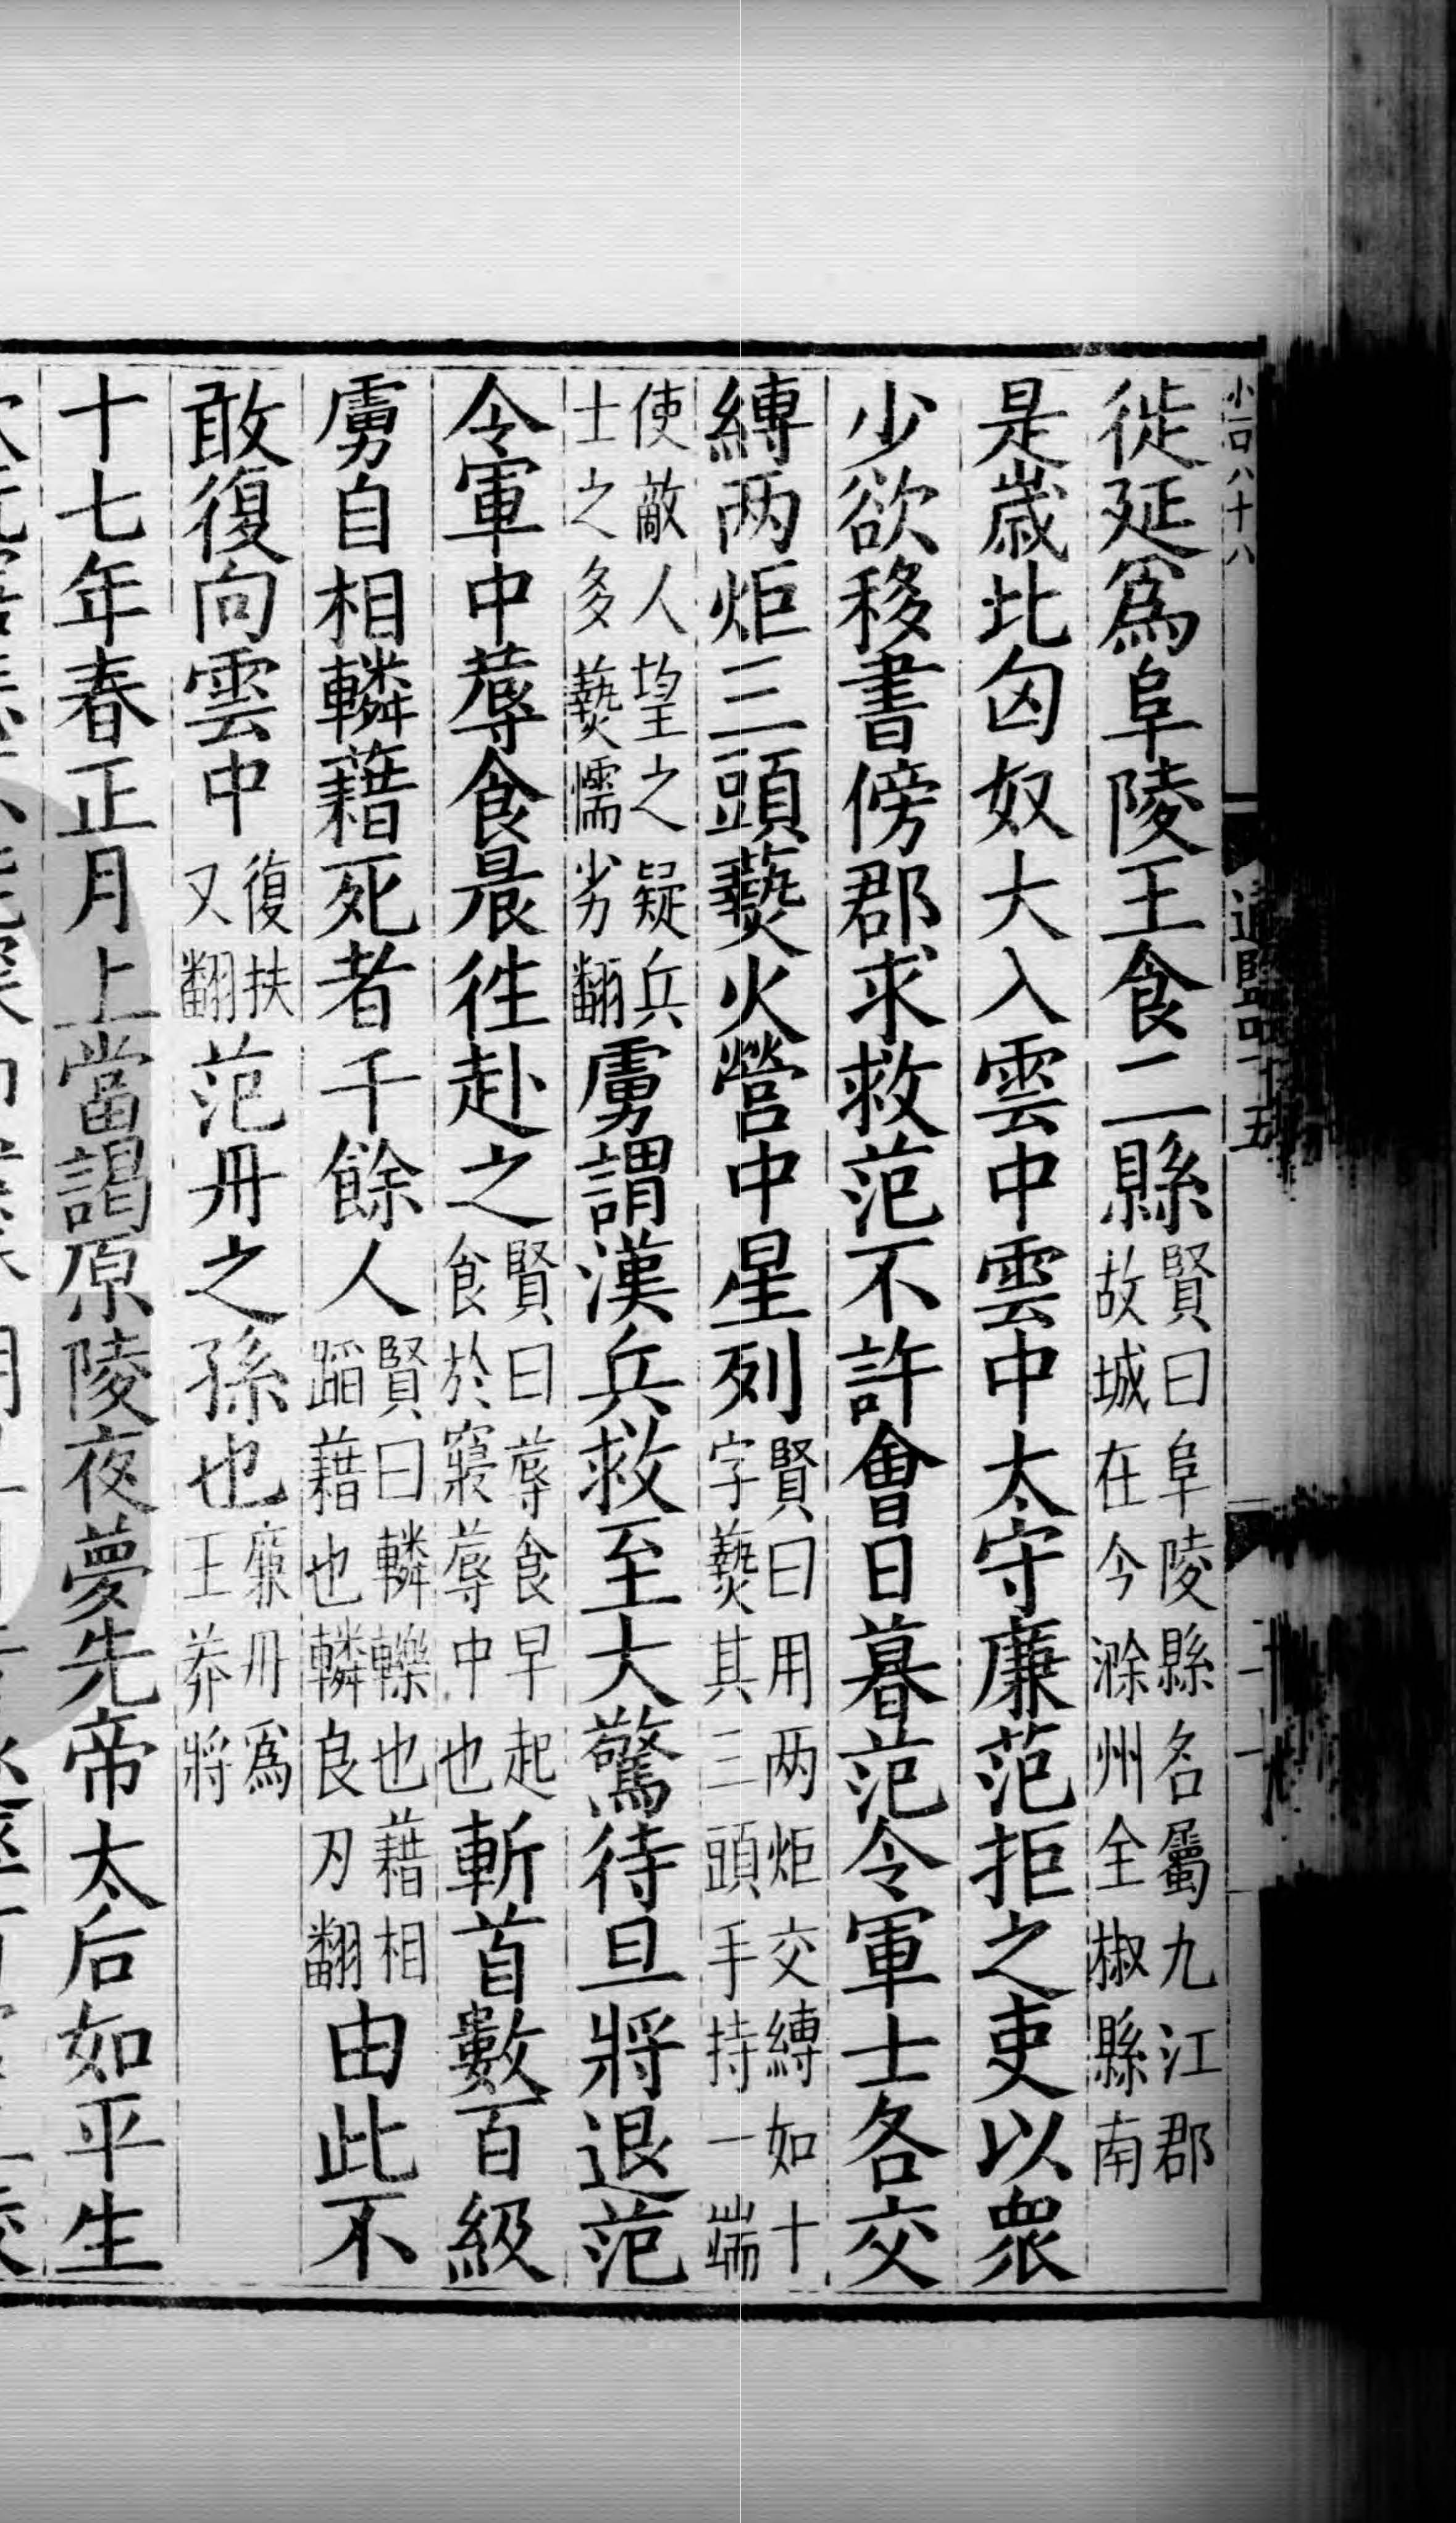 小一百八十八
通鑑四十五
徙延爲阜陵王食二縣賢曰阜陵縣名屬九江郡故城在今滁州全椒縣南
是歲北匈奴大入雲中雲中太守廉范拒之吏以衆
少欲移書傍郡求救范不許會日暮范令軍士各交
縛两炬三頭爇火營中星列賢曰用两炬交縛如十字爇其三頭手持一端
使敵人望之疑兵士之多爇懦劣翻虜謂漢兵救至大驚待旦將退范
令軍中蓐食晨徃赴之賢曰蓐食早起食於寢蓐中也斬首數百級
虜自相轔藉死者千餘人賢曰轔轢也藉相蹈藉也轔良刃翻由此不
敢復向雲中復扶又翻范丹之孫也廉丹爲王莽將
十七年春正月上當謁原陵夜夢先帝太后如平生